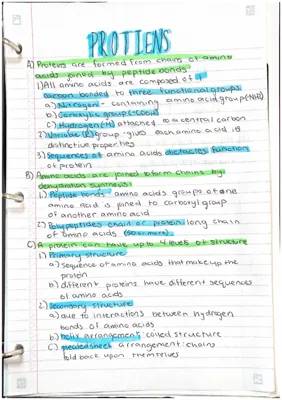 PROTIENS
A) Proteins are formed from chains of amino
acids joined by peptide bonds
1) All amino acids are composed of 1
carbon bonded to three functional groups
a) Nitrogen - containing amino acid group (NH2)
b) Carboxylic group (-COOH)
c) Hydrogen (H) attached to a central carbon
2) Variable (R) group - gives each amino acid its
distinctive properties
3) Sequences of amino acids dictactes function
of protein
B) Amino acids are joined to form chains by
dehydration synthesis
1) Peptide bonds: amino acids group of one
amino acid is joined to carboxyl group
of another amino acid
2) Polypeptides chain or protein: long chain
of amino acids (50 or more)
C) A protein can have up to 4 levels of structure
1) Primary structure
a) sequence of amino acids that make up the
protein
b) different proteins have different sequences
of amino acids
2) Secondary structure
a) due to interactions between hydrogen
bonds of amino acids
b) helix arrangement: coiled structure
c) pleated sheet arrangement: chains
fold back upon themselves